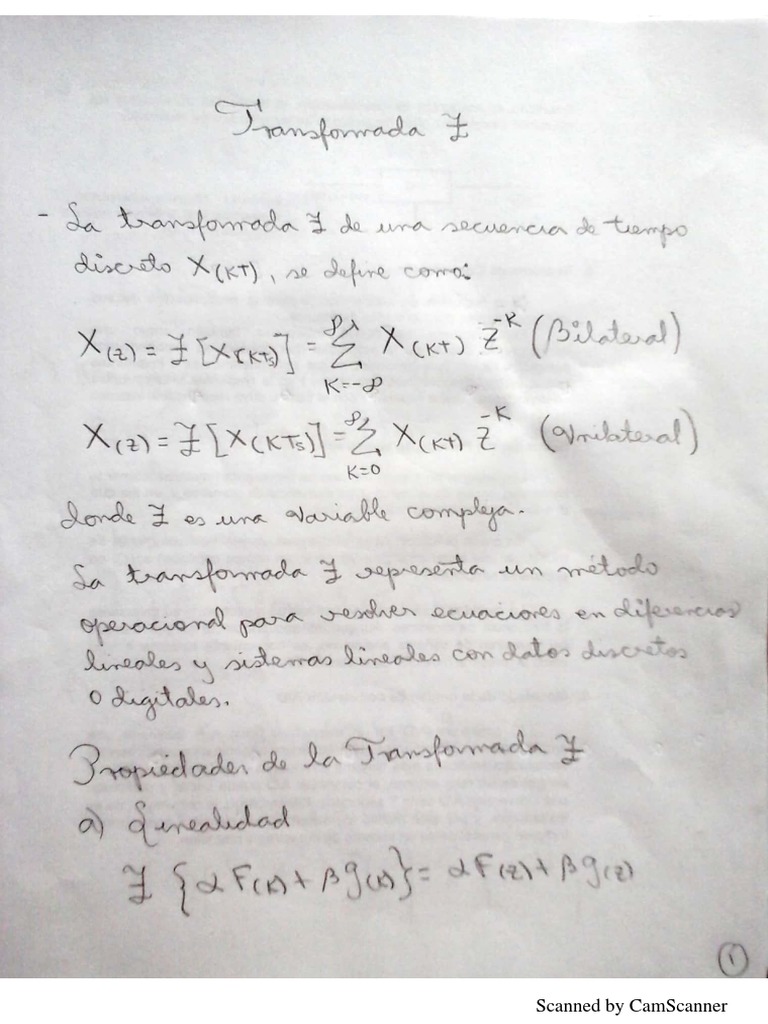 Transformada Z
- La transformada Z de una secuencia de tiempo
discreto X(KT), se define como:
X(z) = Z [X(KTs)] = ∑_{K=-∞}^{∞} X(KT) Z^{-K} (Bilateral)
X(z) = Z [X(KTs)] = ∑_{K=0}^{∞} X(KT) Z^{-K} (Unilateral)
donde Z es una variable compleja.
La transformada Z representa un método
operacional para resolver ecuaciones en diferencias
lineales y sistemas lineales con datos discretos
o digitales.
Propiedades de la Transformada Z
a) Linealidad
Z {αF(K) + βg(K)} = αF(z) + βg(z)
1
Scanned by CamScanner